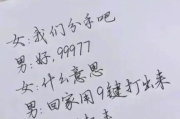 女:我们分手吧
男:好,99977
女:什么意思
男:回家用9键打出来